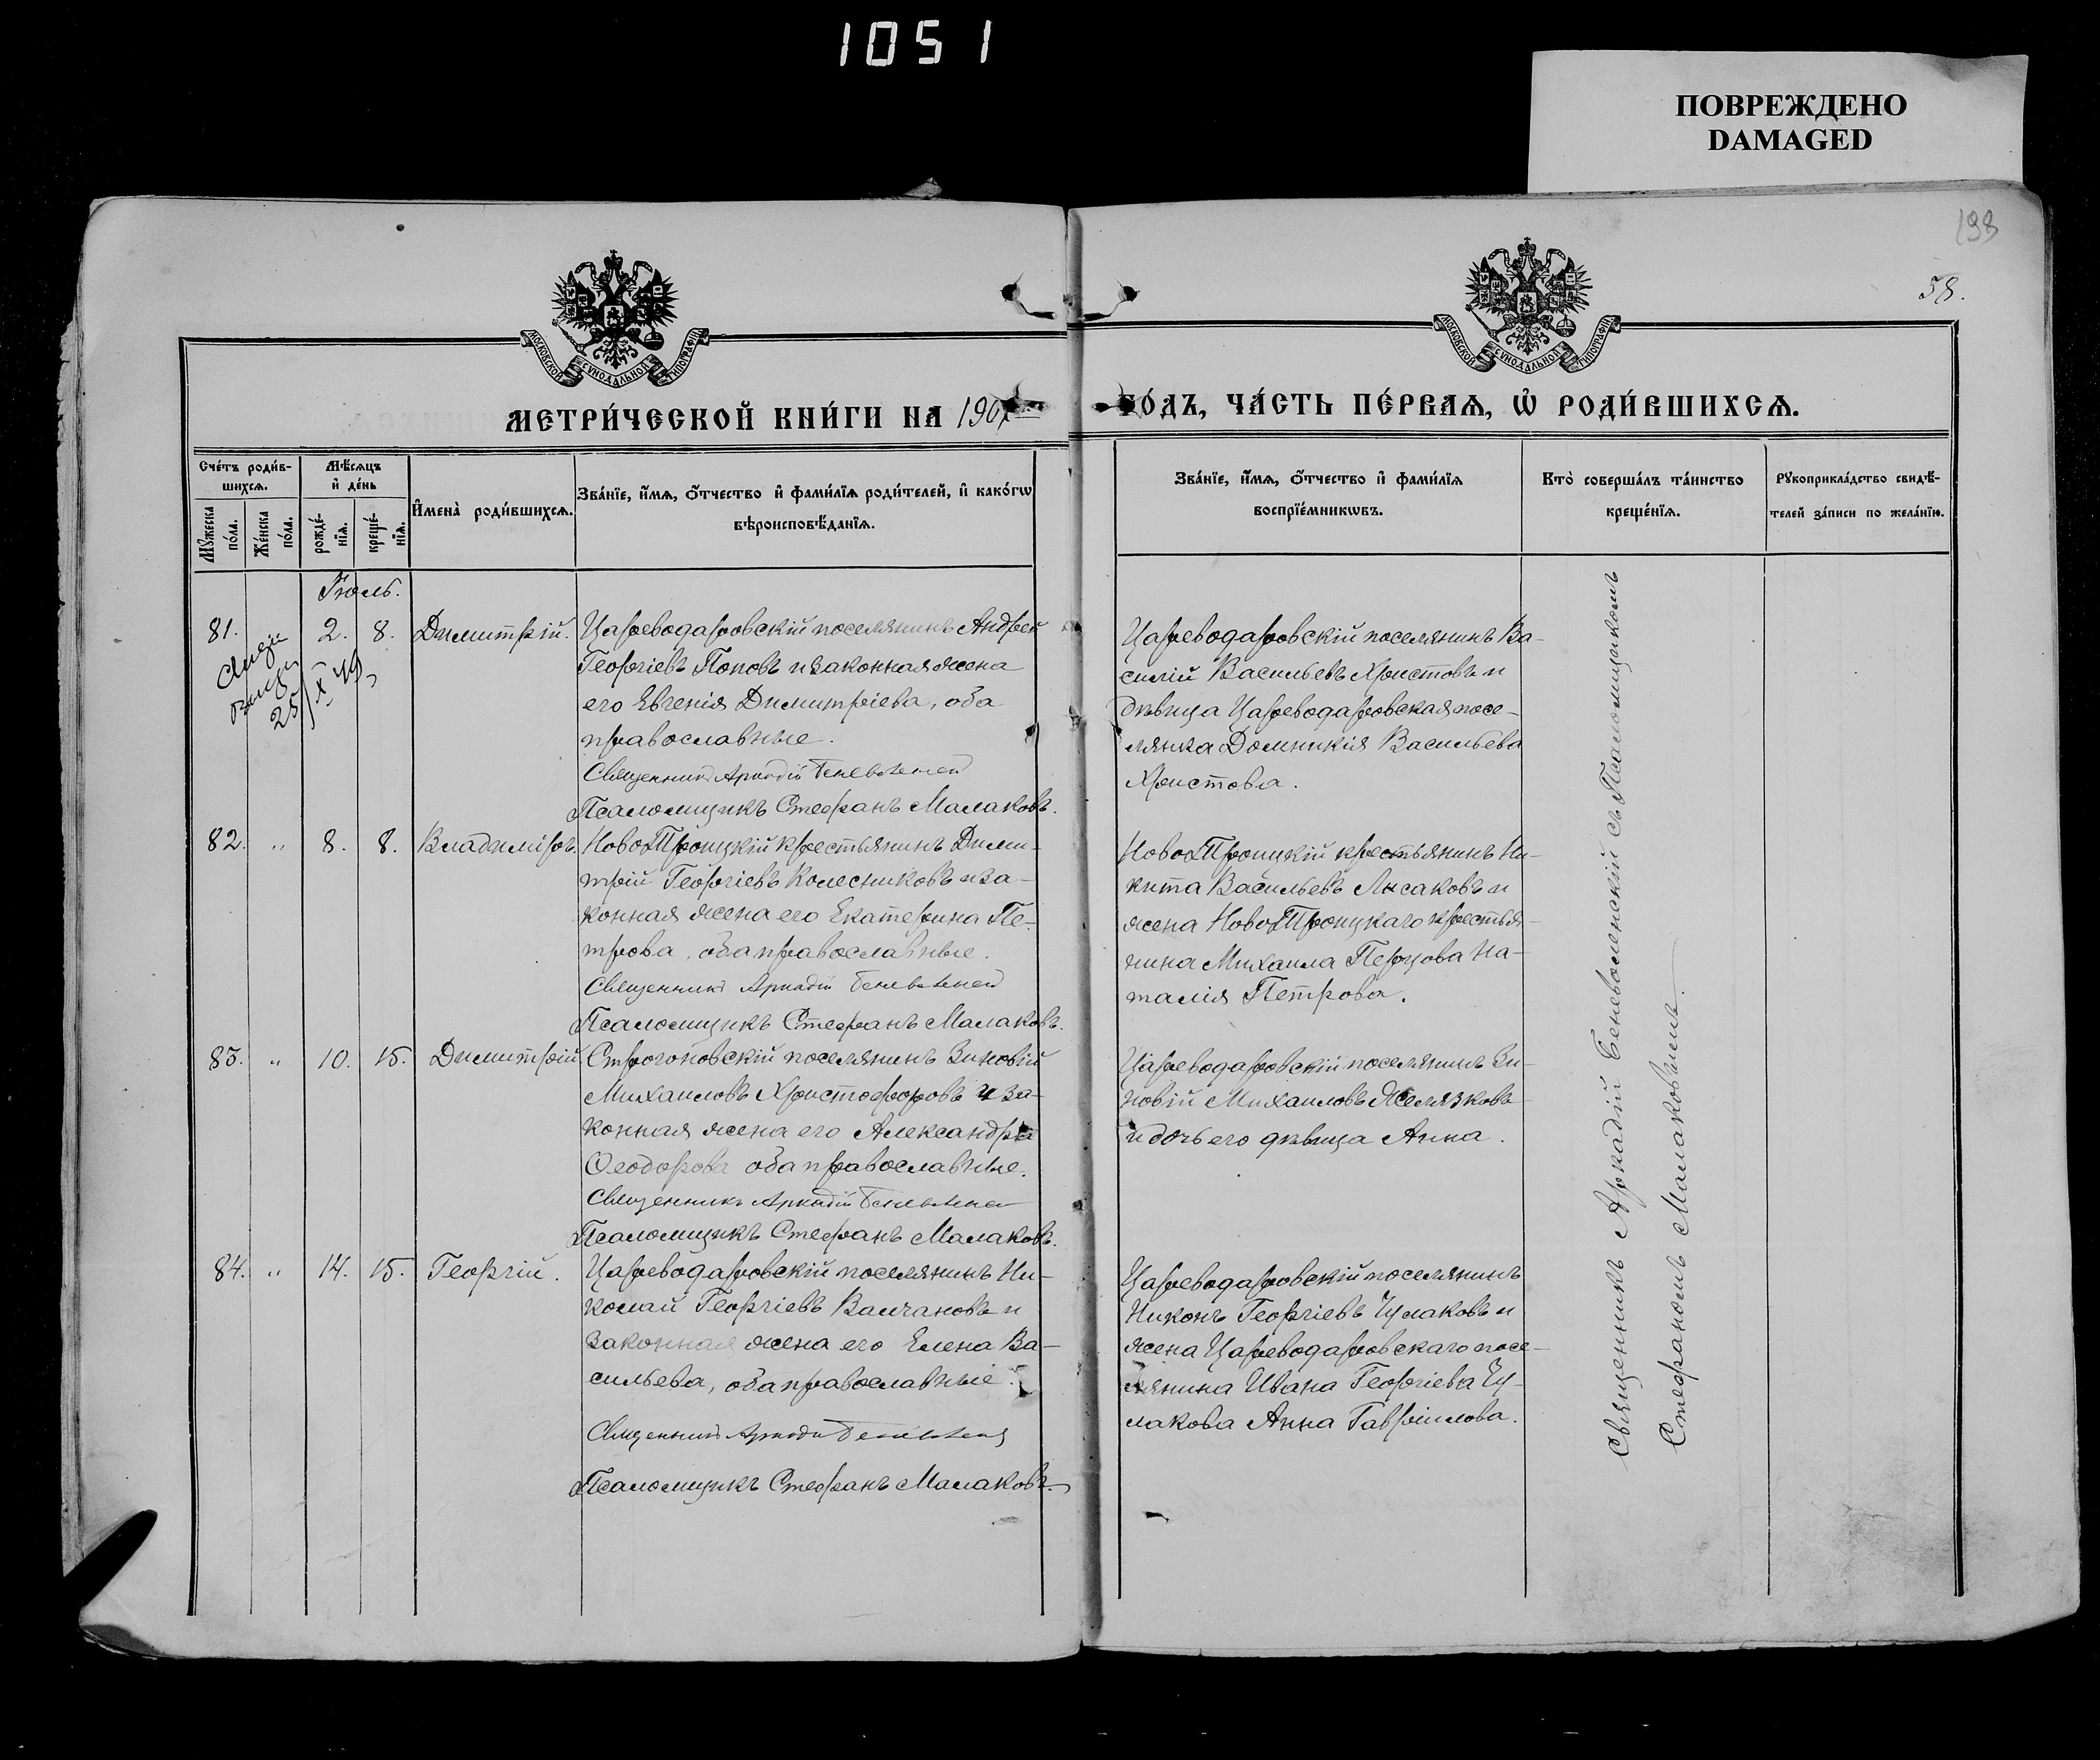 1051
ПОВРЕЖДЕНО
DAMAGED
193
58.
МОСКОВСКОЙ СѴНОДАЛЬНОЙ ТИПОГРАФІИ
МОСКОВСКОЙ СѴНОДАЛЬНОЙ ТИПОГРАФІИ
МЕТРИ́ЧЕСКОЙ КНИ́ГИ НА 190
ГО́ДЪ, ЧА́СТЬ ПЕ́РВАѦ, Ѡ҆ РОДИ́ВШИХСѦ.
Сче́тъ роди́в-
шихсѧ.
Мѹ́жеска по́ла.
Же́нска по́ла.
Мѣ́сѧцъ
и҆ де́нь
рожде́-
нїѧ.
креще́-
нїѧ.
И҆мена̀ роди́вшихсѧ.
Зва́нїе, и҆́мѧ, ѻ҆́тчество и҆ фами́лїѧ роди́телей, и҆ како́гѡ
вѣроисповѣ́данїѧ.
Зва́нїе, и҆́мѧ, ѻ҆́тчество и҆ фами́лїѧ
воспрїе́мникѡвъ.
Кто̀ соверша́лъ та́инство
креще́нїѧ.
Рѹкоприкла́дство свидѣ́-
телей за́писи по жела́нїю.
Іюль.
81. 2. 8. Димитрій.
25/X 49
Цареводаровскій поселянинъ Андрей
Георгіевъ Поповъ и законная жена
его Евгенія Димитріева, оба
православные.
Священникъ Аркадій Беневоленскій
Псаломщикъ Стефанъ Малаковъ.
Цареводаровскій поселянинъ Ва-
силій Васильевъ Христовъ и
дѣвица Цареводаровская посе-
лянка Домникія Васильева
Христова.
82. „ 8. 8. Владиміръ.
НовоТроицкій крестьянинъ Дими-
трій Георгіевъ Колесниковъ и за-
конная жена его Екатерина Пе-
трова, оба православные.
Священникъ Аркадій Беневоленскій
Псаломщикъ Стефанъ Малаковъ.
НовоТроицкій крестьянинъ Ни-
кита Васильевъ Лысаковъ и
жена НовоТроицкаго крестья-
нина Михаила Перцова На-
талія Петрова.
83. „ 10. 15. Димитрій.
Строгоновскій поселянинъ Зиновій
Михаиловъ Христофоровъ и за-
конная жена его Александра
Ѳеодорова оба православные.
Священникъ Аркадій Беневоленскій
Псаломщикъ Стефанъ Малаковъ.
Цареводаровскій поселянинъ Зи-
новій Михаиловъ Желязковъ
и дочь его дѣвица Анна.
84. „ 14. 15. Георгій.
Цареводаровскій поселянинъ Ни-
колай Георгіевъ Валчановъ и
законная жена его Елена Ва-
сильева, оба православные.
Священникъ Аркадій Беневоленскій
Псаломщикъ Стефанъ Малаковъ.
Цареводаровскій поселянинъ
Никонъ Георгіевъ Чулаковъ и
жена Цареводаровскаго посе-
лянина Ивана Георгіева Чу-
лакова Анна Гавріилова.
Священникъ Аркадій Беневоленскій съ Псаломщикомъ
Стефаномъ Малаковымъ.